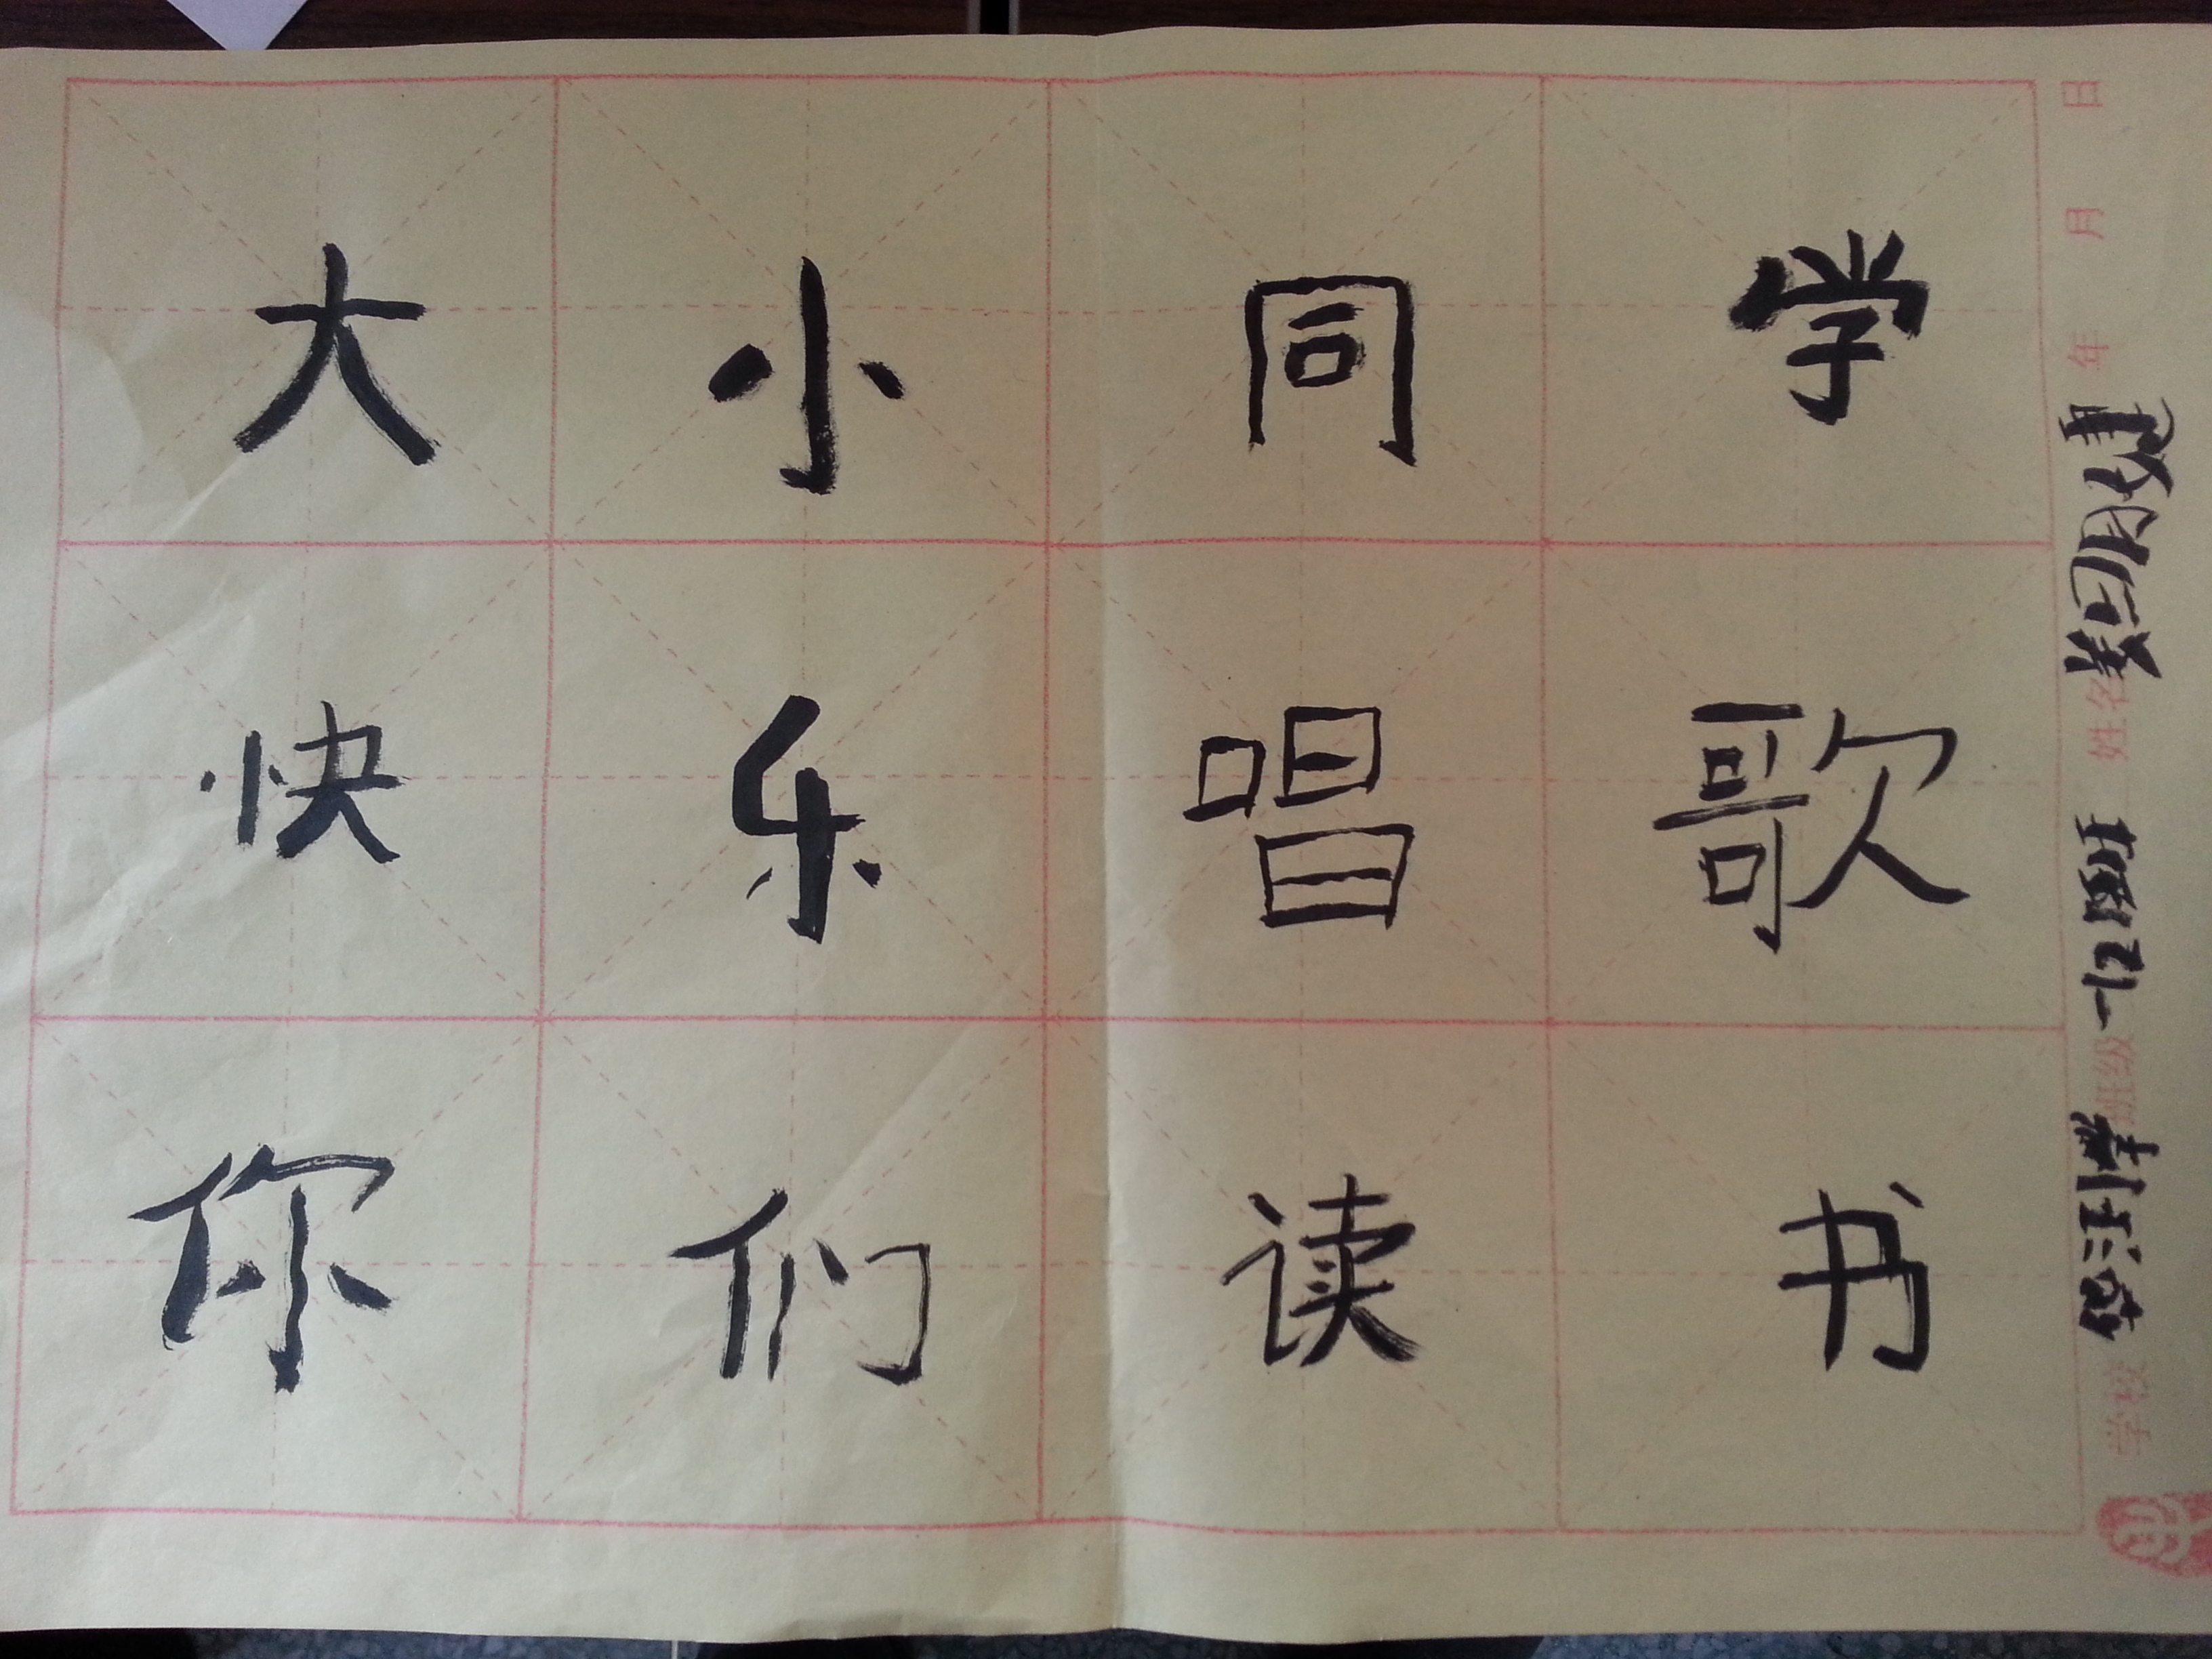 大小同学
快乐唱歌
你们读书
学校
班级
姓名
年 月 日